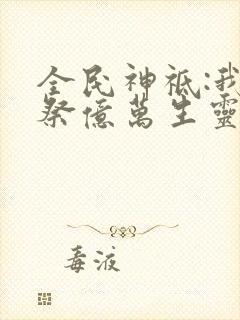 全民神祗:我
祭億萬生靈
毒液